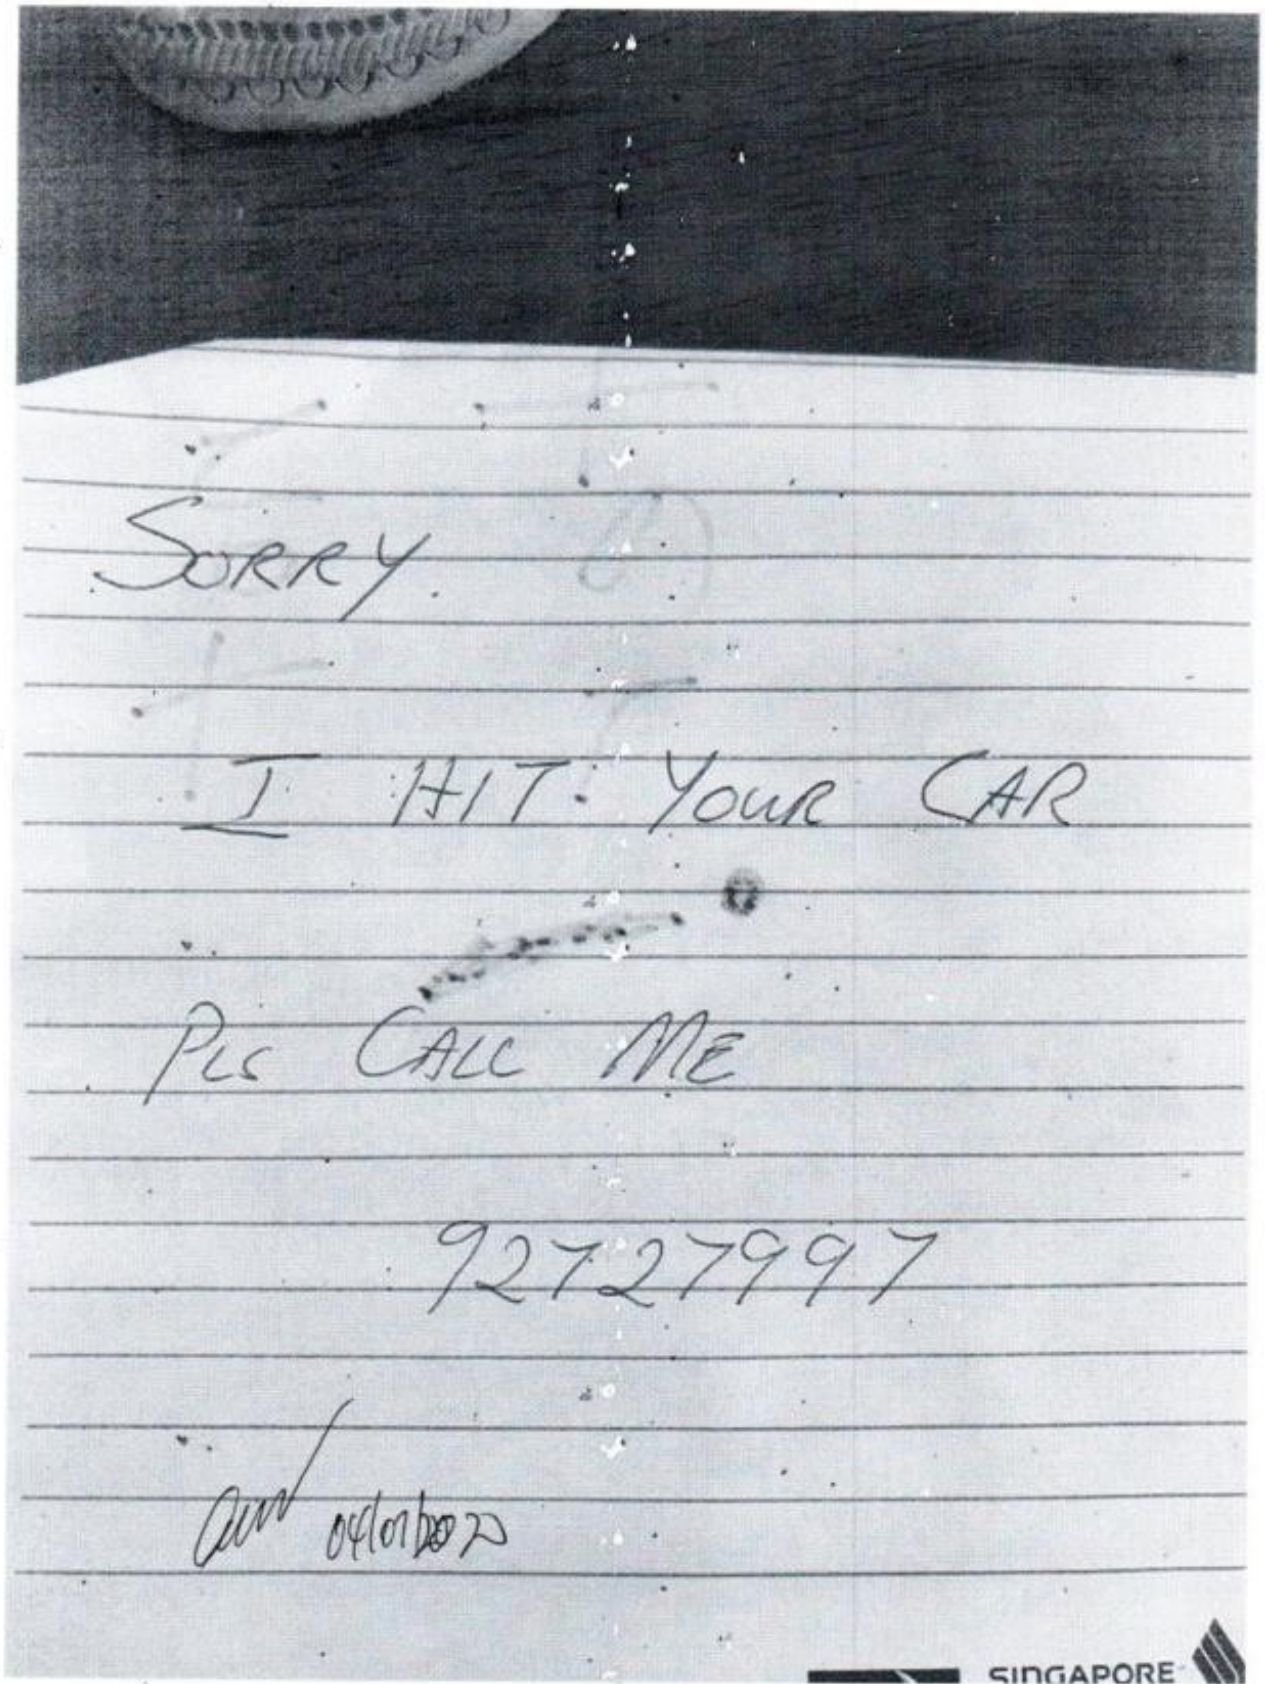 SORRY.
I HIT YOUR CAR
PLS CALL ME
92727997
04/01/2020
SINGAPORE